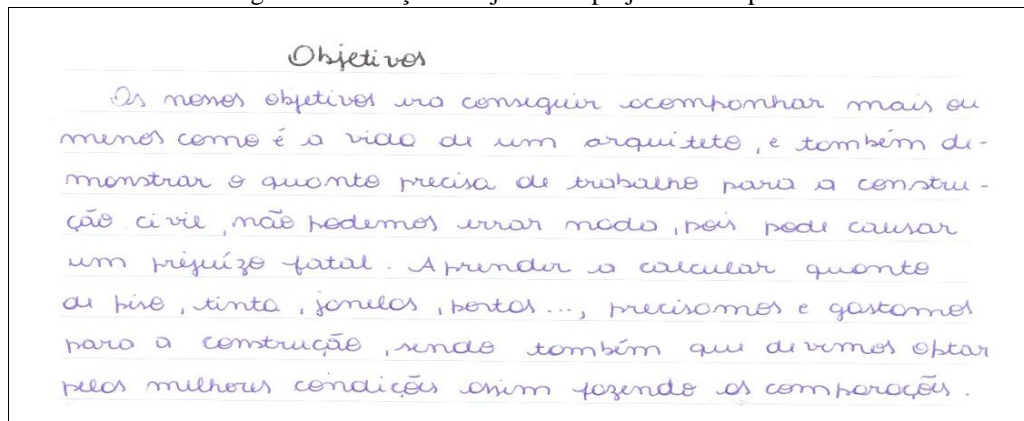 Objetivos
Os nossos objetivos era conseguir acompanhar mais ou
menos como é a vida de um arquiteto, e também de-
monstrar o quanto precisa de trabalho para a constru-
ção civil, não podemos errar nada, pois pode causar
um prejuízo fatal. Aprender a calcular quanto
de piso, tinta, janelas, portas..., precisamos e gastamos
para a construção, sendo também que devemos optar
pelas milhores condições assim fazendo as comparações.